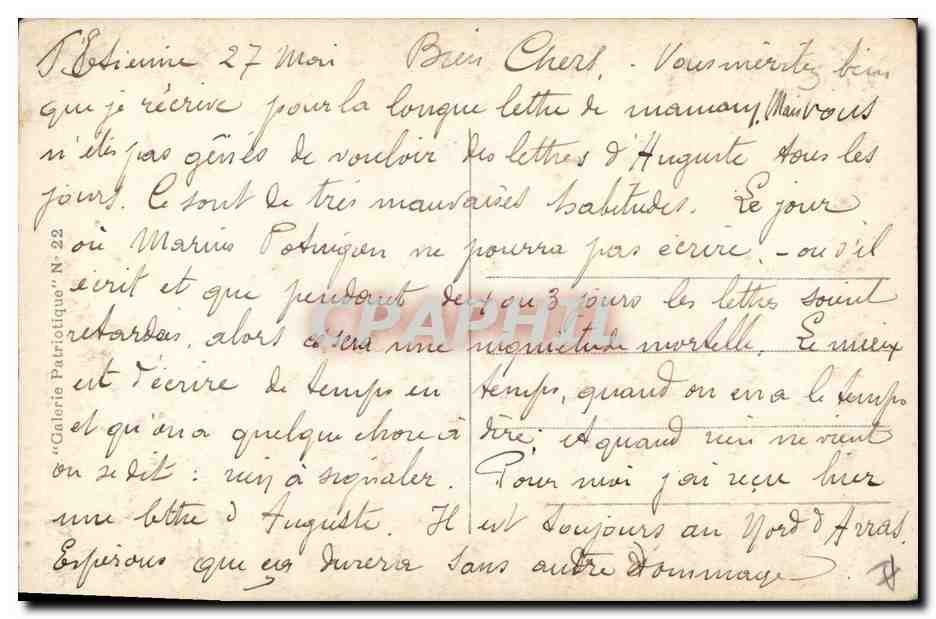 St Etienne 27 Mai Bien Chers, - Vous méritez bien
que je récrive pour la longue lettre de maman. Mais vous
n'êtes pas gênés de vouloir des lettres d'Auguste tous les
jours. Ce sont de très mauvaises habitudes. Le jour
où Marius ne pourra pas écrire - ou s'il
écrit et que pendant deux ou 3 jours les lettres soient
retardées, alors ce sera une inquiétude mortelle. Le mieux
est d'écrire de temps en temps, quand on en a le temps
et qu'on a quelque chose à dire; et quand rien ne vient
on se dit : rien à signaler. Pour moi j'ai reçu hier
une lettre d'Auguste. Il est toujours au Nord d'Arras.
Espérons que ça durera sans autre dommage.
"Galerie Patriotique" N° 22
CPAPHIL